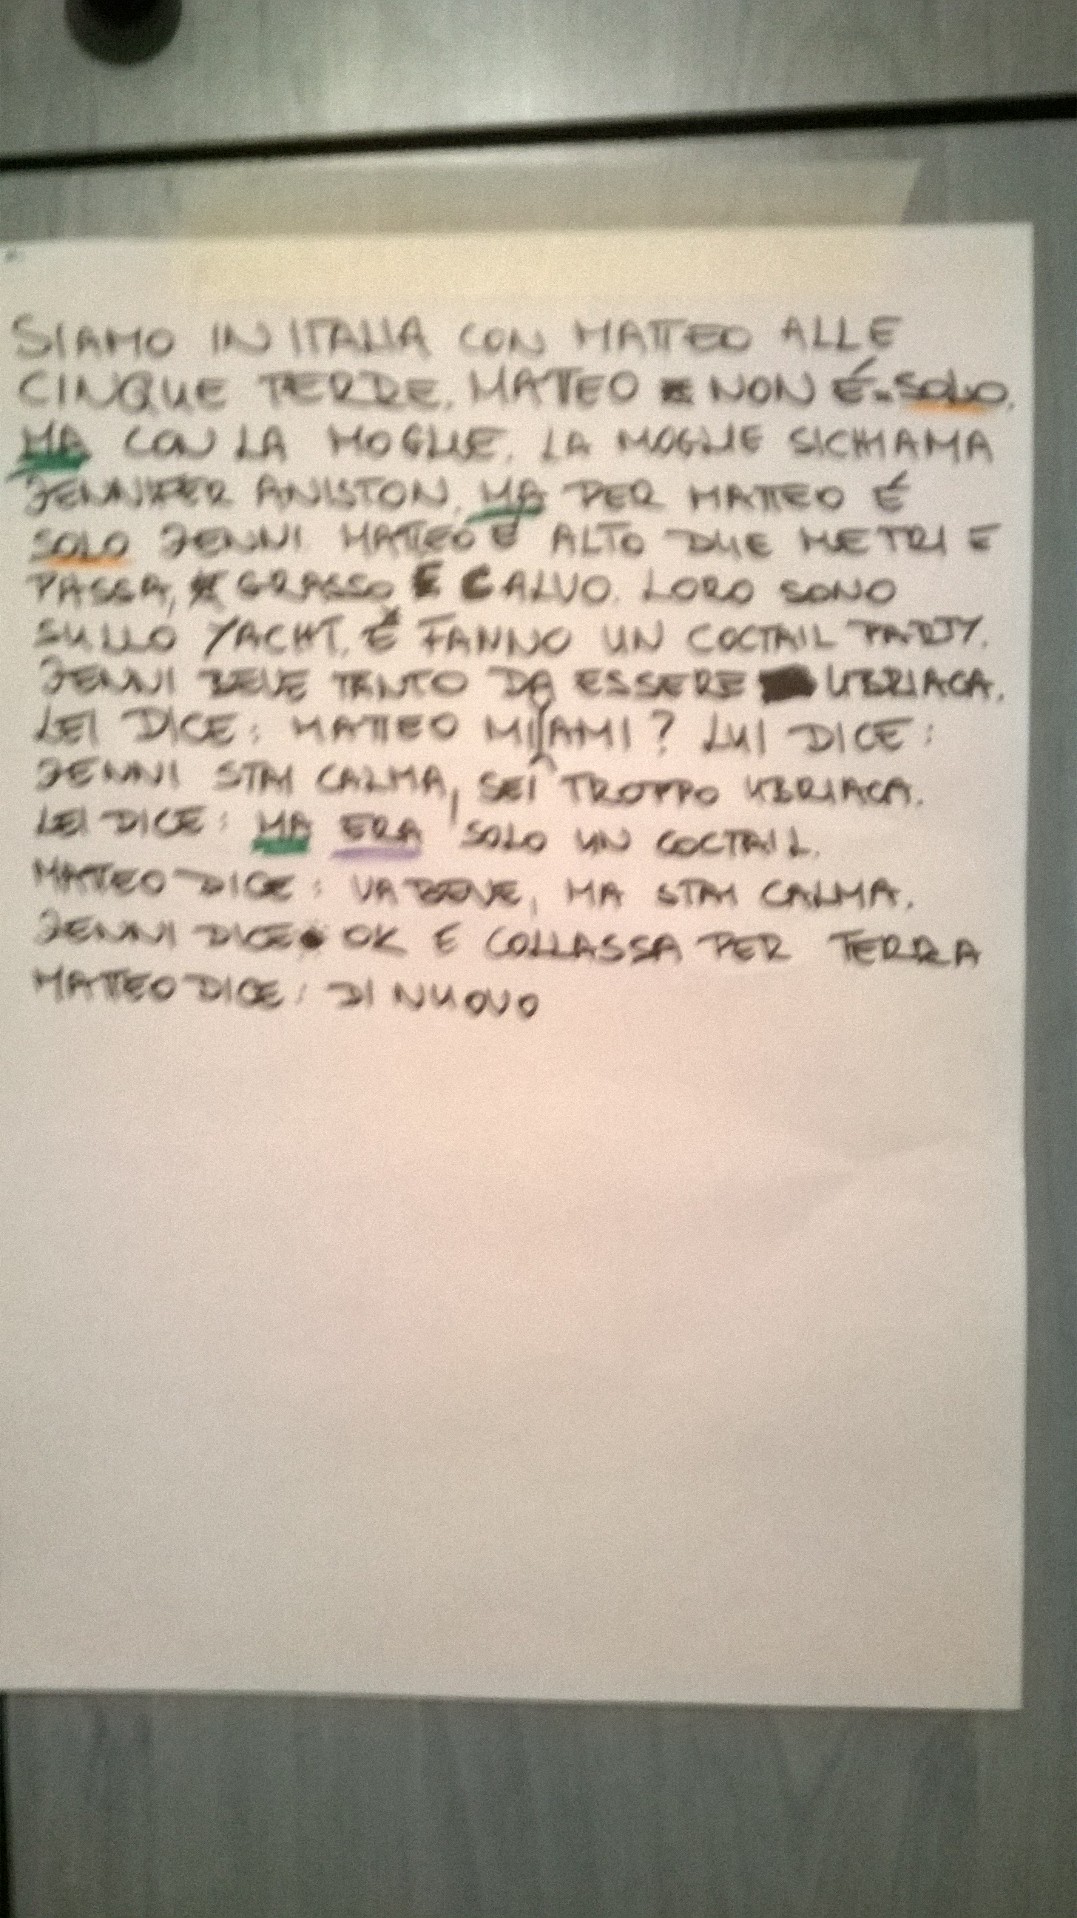 SIAMO IN ITALIA CON MATTEO ALLE
CINQUE TERRE. MATTEO NON É SOLO,
MA CON LA MOGLIE. LA MOGLIE SI CHIAMA
JENNIFER ANISTON, MA PER MATTEO É
SOLO JENNI. MATTEO É ALTO DUE METRI E
PASSA, GRASSO E CALVO. LORO SONO
SULLO YACHT, E FANNO UN COCTAIL PARTY.
JENNI BEVE TANTO DA ESSERE UBRIACA.
LEI DICE: MATTEO MI AMI? LUI DICE:
JENNI STAI CALMA, SEI TROPPO UBRIACA.
LEI DICE: MA ERA SOLO UN COCTAIL.
MATTEO DICE: VA BENE, MA STAI CALMA.
JENNI DICE OK E COLLASSA PER TERRA
MATTEO DICE: DI NUOVO